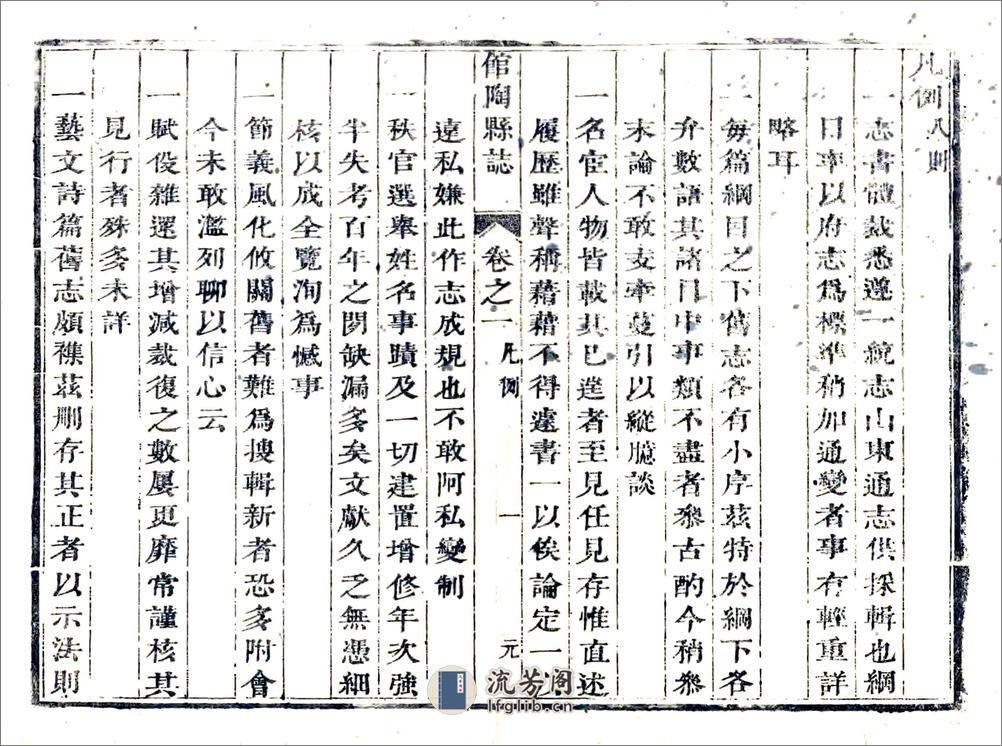 凡例八則
一志書體裁悉遵一統志山東通志供採輯也綱
目率以府志爲標準稍加通變者事有輕重詳
略耳
一每篇綱目之下舊志各有小序茲特於綱下各
弁數語其諸目中事類不盡者叅古酌今稍叅
末論不敢支牽蔓引以縱臆談
一名宦人物皆載其已逹者至見任見存惟直述
履歷雖聲稱藉藉不得遽書一以俟論定一以
館陶縣誌
卷之一
凡例
一
元
遠私嫌此作志成規也不敢阿私變制
一秩官選舉姓名事蹟及一切建置增修年次強
半失考百年之間缺漏多矣文獻久乏無憑細
核以成全覽洵爲憾事
一節義風化攸關舊者難爲搜輯新者恐多附會
今未敢濫列聊以信心云
一賦役雜還其增減裁復之數屢更靡常謹核其
見行者殊多未詳
一藝文詩篇舊志頗襍茲刪存其正者以示法則
流芳阁
lfglib.cn